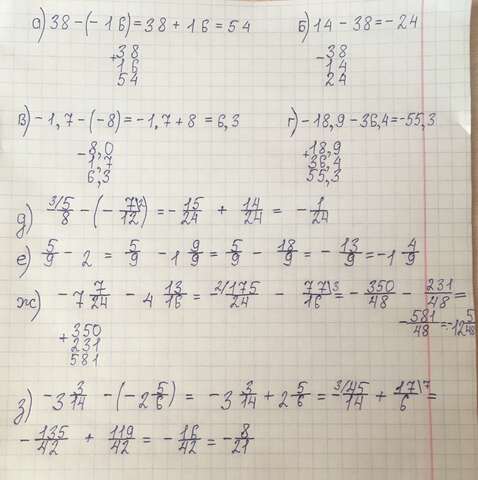 а) 38 - (-16) = 38 + 16 = 54
+38
16
54
б) 14 - 38 = -24
-38
14
24
в) -1,7 - (-8) = -1,7 + 8 = 6,3
-8,0
1,7
6,3
г) -18,9 - 36,4 = -55,3
+18,9
36,4
55,3
д) ³⁄5/8 - (-7\²/12) = -15/24 + 14/24 = -1/24
е) 5/9 - 2 = 5/9 - 1 9/9 = 5/9 - 18/9 = -13/9 = -1 4/9
ж) -7 7/24 - 4 13/16 = ²⁄175/24 - 77\³/16 = -350/48 - 231/48 =
-581/48 = -12 5/48
+350
231
581
з) -3 3/14 - (-2 5/6) = -3 3/14 + 2 5/6 = -³⁄45/14 + 17\⁷/6 =
-135/42 + 119/42 = -16/42 = -8/21